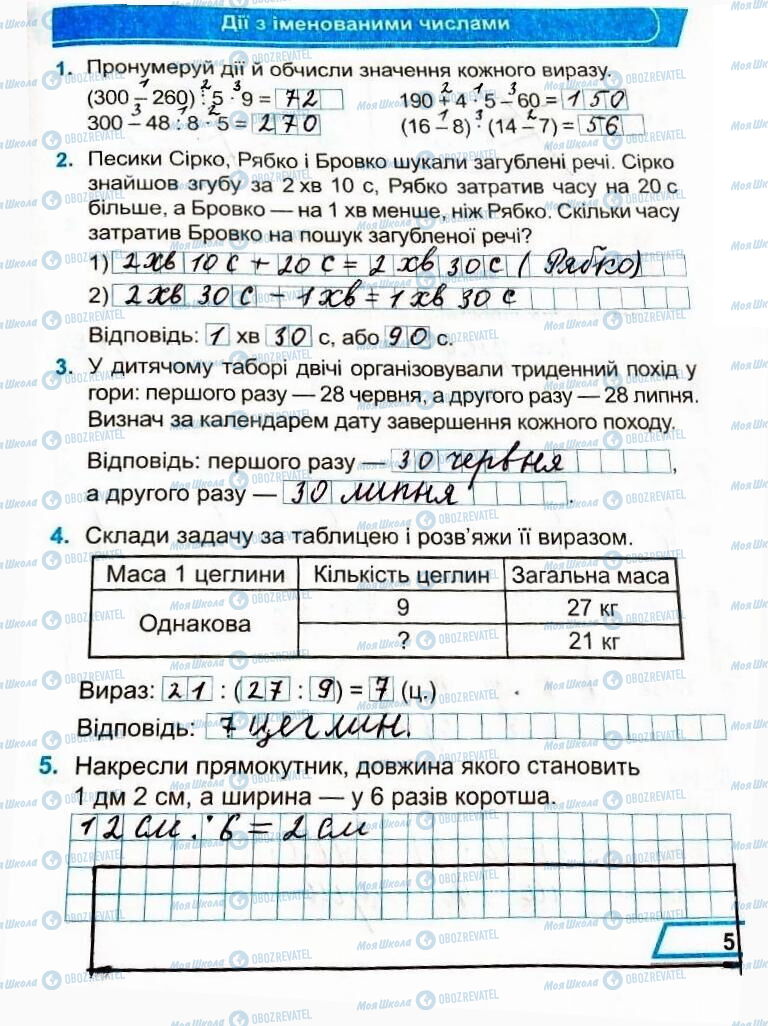 Дії з іменованими числами
1. Пронумеруй дії й обчисли значення кожного виразу.
(300 – 260) : 5 · 9 = 72
190 + 4 · 5 – 60 = 150
300 – 48 : 8 · 5 = 270
(16 – 8) · (14 – 7) = 56
2. Песики Сірко, Рябко і Бровко шукали загублені речі. Сірко
знайшов згубу за 2 хв 10 с, Рябко затратив часу на 20 с
більше, а Бровко — на 1 хв менше, ніж Рябко. Скільки часу
затратив Бровко на пошук загубленої речі?
1) 2 хв 10 с + 20 с = 2 хв 30 с ( Рябко)
2) 2 хв 30 с – 1 хв = 1 хв 30 с
Відповідь: 1 хв 30 с, або 90 с.
3. У дитячому таборі двічі організовували триденний похід у
гори: першого разу — 28 червня, а другого разу — 28 липня.
Визнач за календарем дату завершення кожного походу.
Відповідь: першого разу — 30 червня,
а другого разу — 30 липня.
4. Склади задачу за таблицею і розв’яжи її виразом.
Маса 1 цеглини Кількість цеглин Загальна маса
Однакова
9 27 кг
? 21 кг
Вираз: 21 : (27 : 9) = 7 (ц.)
Відповідь: 7 цеглин.
5. Накресли прямокутник, довжина якого становить
1 дм 2 см, а ширина — у 6 разів коротша.
12 см : 6 = 2 см
5